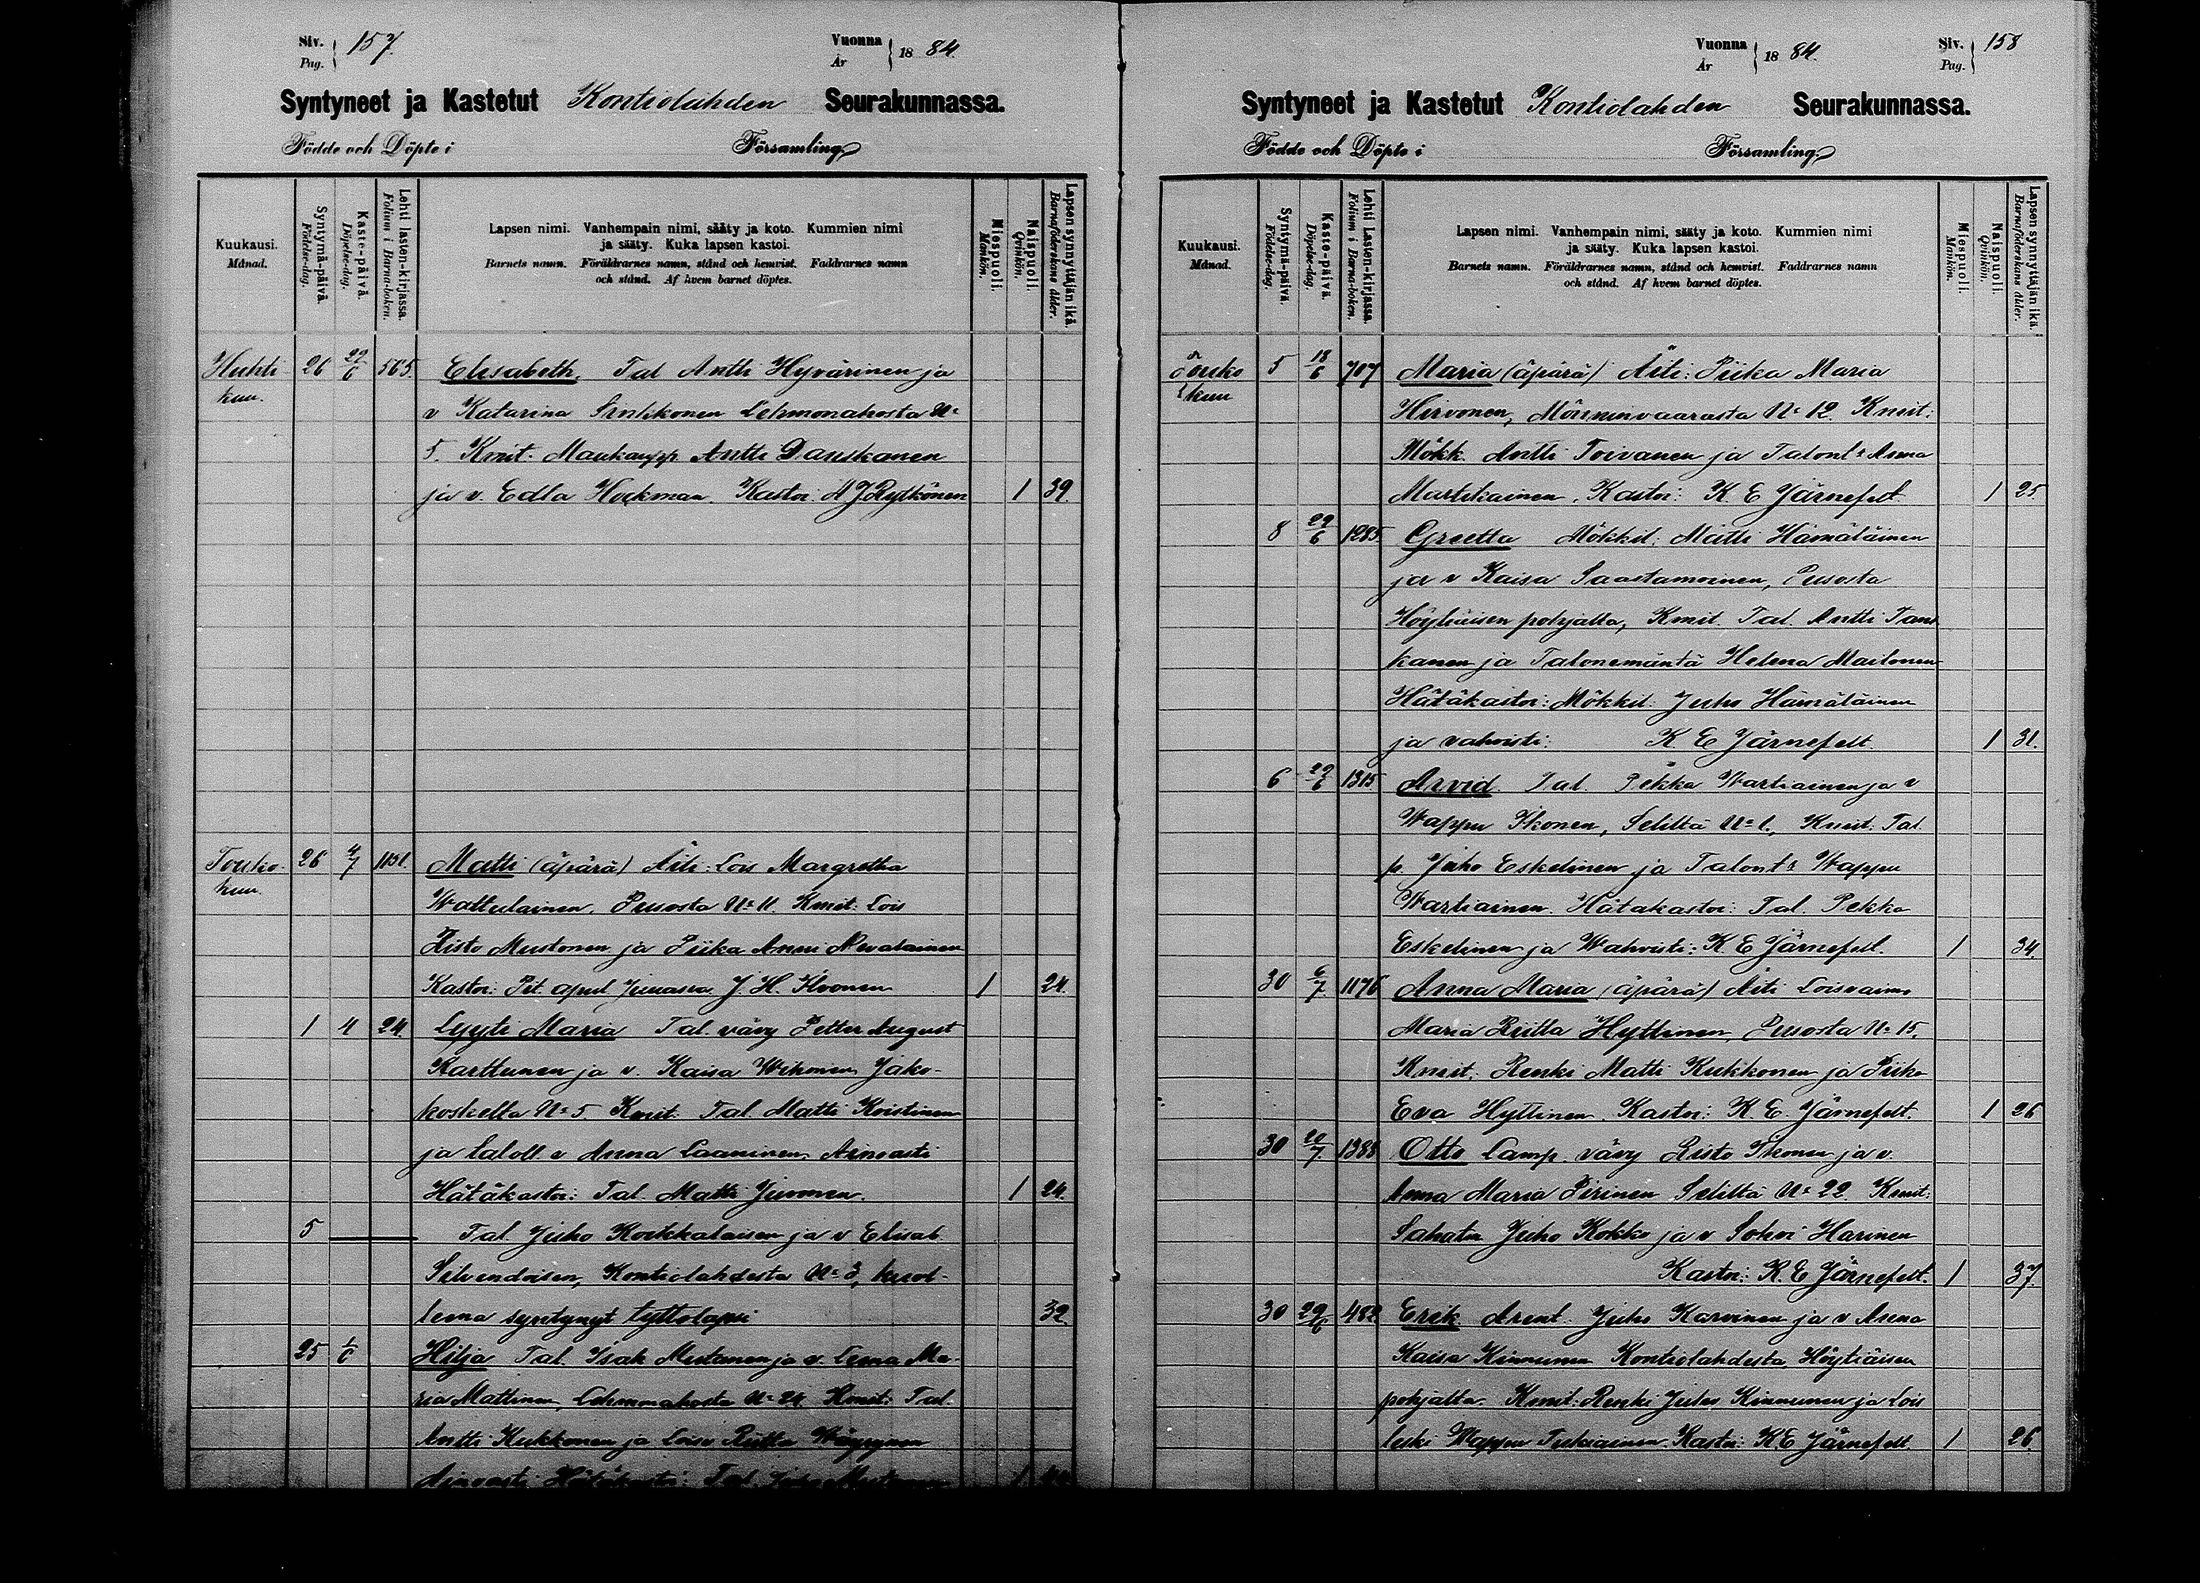 Siv. Pag. 157. Vuonna År 1884.
Syntyneet ja Kastetut Kontiolahden Seurakunnassa.
Födde och Döpte i Församling.
Kuukausi. Månad.
Syntymä-päivä. Födelse-dag.
Kaste-päivä. Döpelse-dag.
Lehti lasten-kirjassa. Folium i Barna-boken.
Lapsen nimi. Vanhempain nimi, sääty ja koto. Kummien nimi
ja sääty. Kuka lapsen kastoi.
Barnets namn. Föräldrarnes namn, stånd och hemvist. Faddrarnes namn
och stånd. Af hvem barnet döptes.
Miespuoli. Mankön.
Naispuoli. Qvinkön.
Lapsen synnyttäjän ikä. Barnaföderskans ålder.
Huhti 26 22/6 565. Elisabeth. Tal Antti Hyvärinen ja
kuu. v Katarina Sinkkonen Lehmonahosta No
5. Kmit. Maakaupp Antti Danskanen
ja v. Edla Hockman. Kastoi A J Rytkönen 1 39.
Touko- 26 4/7 1151. Matti (äpärä) Äiti: Lois Margretha
kuu. Wattulainen, Pusosta No 11. Kmit: Lois
Risto Mustonen ja Piika Anni Nevalainen
Kastoi: Pit. apul J. H. 1 24.
1 4 24. Lyyti Maria Tal. vävy Petter August
Karttunen ja v. Kaisa Wihonen Jako-
koskelta No 5 Kmit: Tal Matti Koistinen
ja v Anna Laaninen. Ainoasti
Hätäkastoi: Tal. Matti Juvonen. 1 24.
5 Tal Juho Koikkalaisen ja v Elisab
Silvendoisen, Kontiolahdesta No 3, kuol-
leena syntynyt tyttölapsi 32.
25 1/6 Hilja Tal. Isak Mustonen ja v. Leena Ma-
ria Mattinen, Lehmonahosta No 24 Kmit: Tal.
Antti Kukkonen ja Loisv Riitta Wäyrynen
Ainoasti Hätäkastoi: Tal 1
Vuonna År 1884. Siv. Pag. 158
Syntyneet ja Kastetut Kontiolahden Seurakunnassa.
Födde och Döpte i Församling.
Kuukausi. Månad.
Syntymä-päivä Födelse-dag.
Kaste-päivä. Döpelse-dag.
Lehti Lasten-kirjassa. Folium i Barna-boken.
Lapsen nimi. Vanhempain nimi, sääty ja koto. Kummien nimi
ja sääty. Kuka lapsen kastoi.
Barnets namn. Föräldrarnes namn, stånd och hemvist. Faddrarnes namn
och stånd. Af hvem barnet döptes.
Miespuoli. Mankön.
Naispuoli. Qvinkön.
Lapsen synnyttäjän ikä. Barnaföderskans ålder.
Touko 5 18/6 707 Maria (äpärä) Äiti: Piika Maria
kuu Hirvonen, Mönninvaarasta No 12. Kmit:
Mökk. Antti Toivanen ja Talont:r Anna
Martikainen. Kastoi: K. E Järnefelt 1 25.
8 22/6 1285. Greetta Mökkil: Matti Hämäläinen
ja v Kaisa Saastamoinen, Pusosta
Höytiäisen pohjalta, Kmit. Tal. Antti Tans
kanen ja Talonemäntä Helena Mailonen
Hätäkastoi: Mökkil. Juho Hämäläinen
ja vahvisti: K E Järnefelt. 1 31.
6 22/6 1315 Arvid. Tal. Pekka Wartiainen ja v
Wappu Ikonen, Seliltä No 1., Kmit: Tal.
p. Juho Eskelinen ja Talont:r Wappu
Wartiainen. Hätäkastoi: Tal. Pekka
Eskelinen ja Wahvisti: K E Järnefelt. 1 34.
30 6/7. 1176 Anna Maria (äpärä) Äiti Loisvaimo
Maria Riitta Hyttinen, Pusosta No 15.
Kmit. Renki Matti Kukkonen ja Piika
Eva Hyttinen. Kastoi: K. E. Järnefelt. 1 26
30 20/7. 1388 Otto Lamp. vävy Risto Ikonen ja v.
Anna Maria Piirinen Seliltä No 22 Kmit:
Juho Kokko ja v Sohvi Harinen
Kastoi: K. E Järnefelt. 1 37.
30 29/6 482 Erik Arent. Juho Karvinen ja v Anna
Kaisa Kinnunen Kontiolahdesta, Höytiäisen
pohjalta. Kmit: Renki Juho Kinnunen ja Lois
leski Wappu Tukiainen. Kastoi: K. E Järnefelt 1 26.